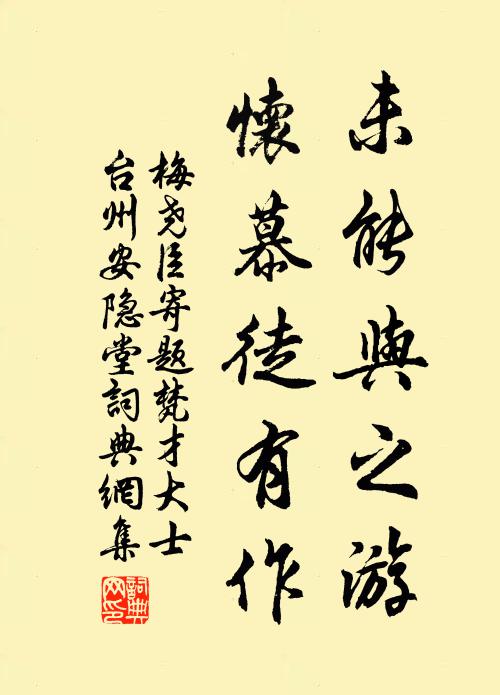 未能與之游
懷慕徒有作
梅尧臣寄题梵才大士
台州安隐堂詞典網集
詞典网印